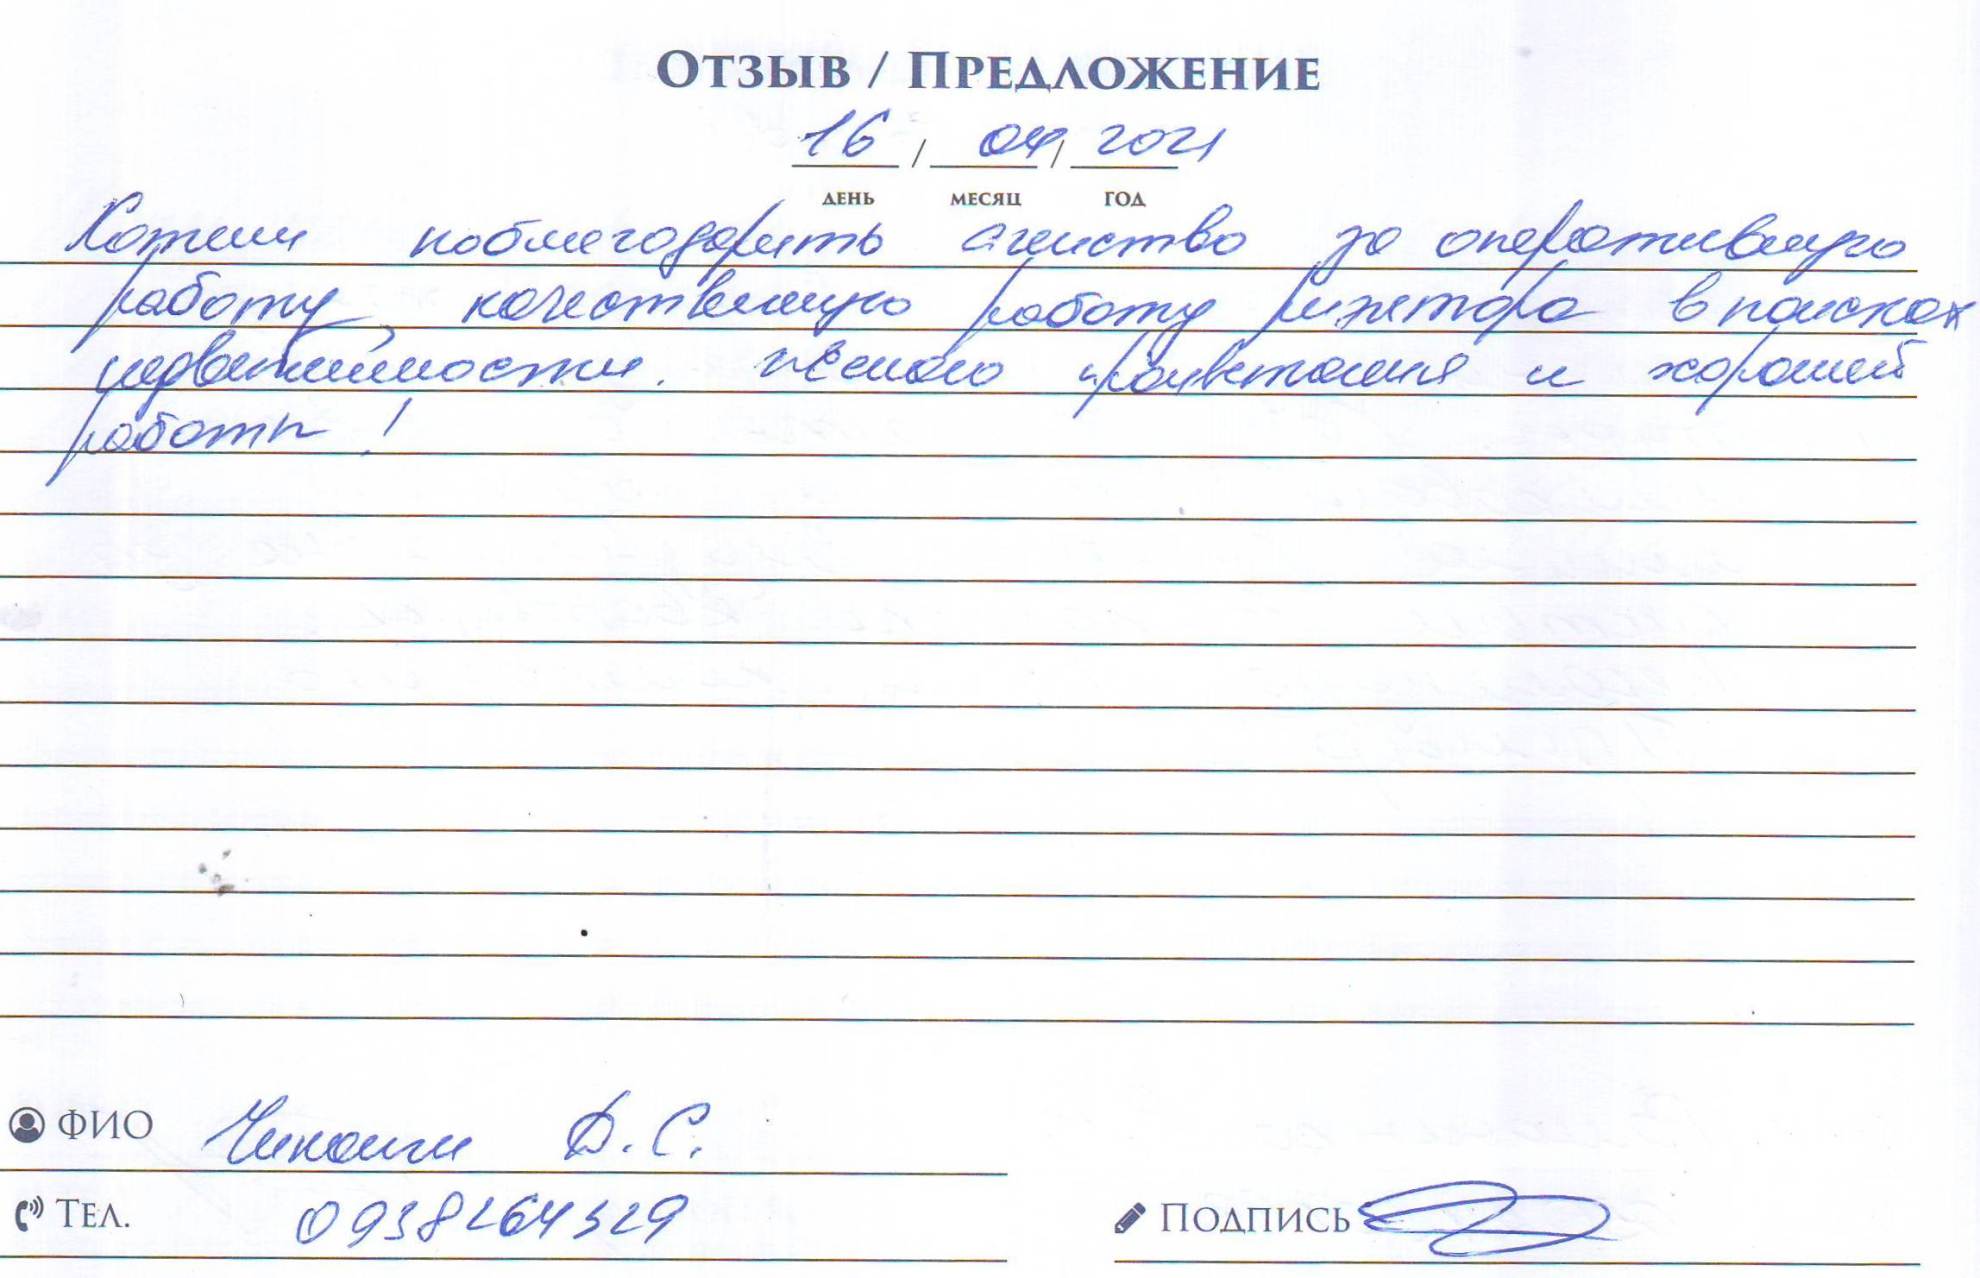 Отзыв / Предложение
16 / 04 / 2021
день месяц год
Хотели поблагодарить агенство за оперативную
работу, качественную работу риэлтора в поисках
недвижимости. желаю процветания и хорошей
работы!
ФИО Чикаиги Д.С.
Тел. 0938264329
Подпись